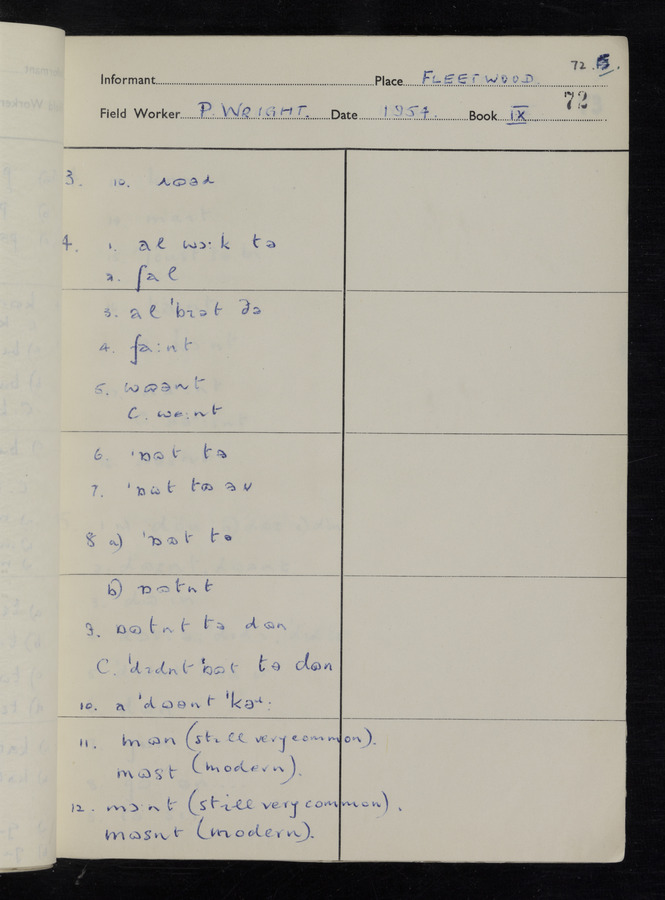 72.
Informant
Place FLEETWOOD
Field Worker P. WRIGHT. Date 1954. Book IX 72
3. 10.
4. 1. al wɔ:k tə
2. ʃal
3. al 'bɪət ðə
4. ʃa:nt
5. wɷənt
C. we:nt
6. 'ɒɷt tə
7. 'ɒɷt tɷ əv
8 a) 'ɒɷt tə
b) ɒɷtnt
9. ɒɷtnt tə dɷn
C. 'dɪdnt 'ɒɷt tə dɷn
10. a 'dɷənt
11. mɷn (still very common).
mɷst (modern).
12. mɔnt (still very common).
mɷsnt (modern).